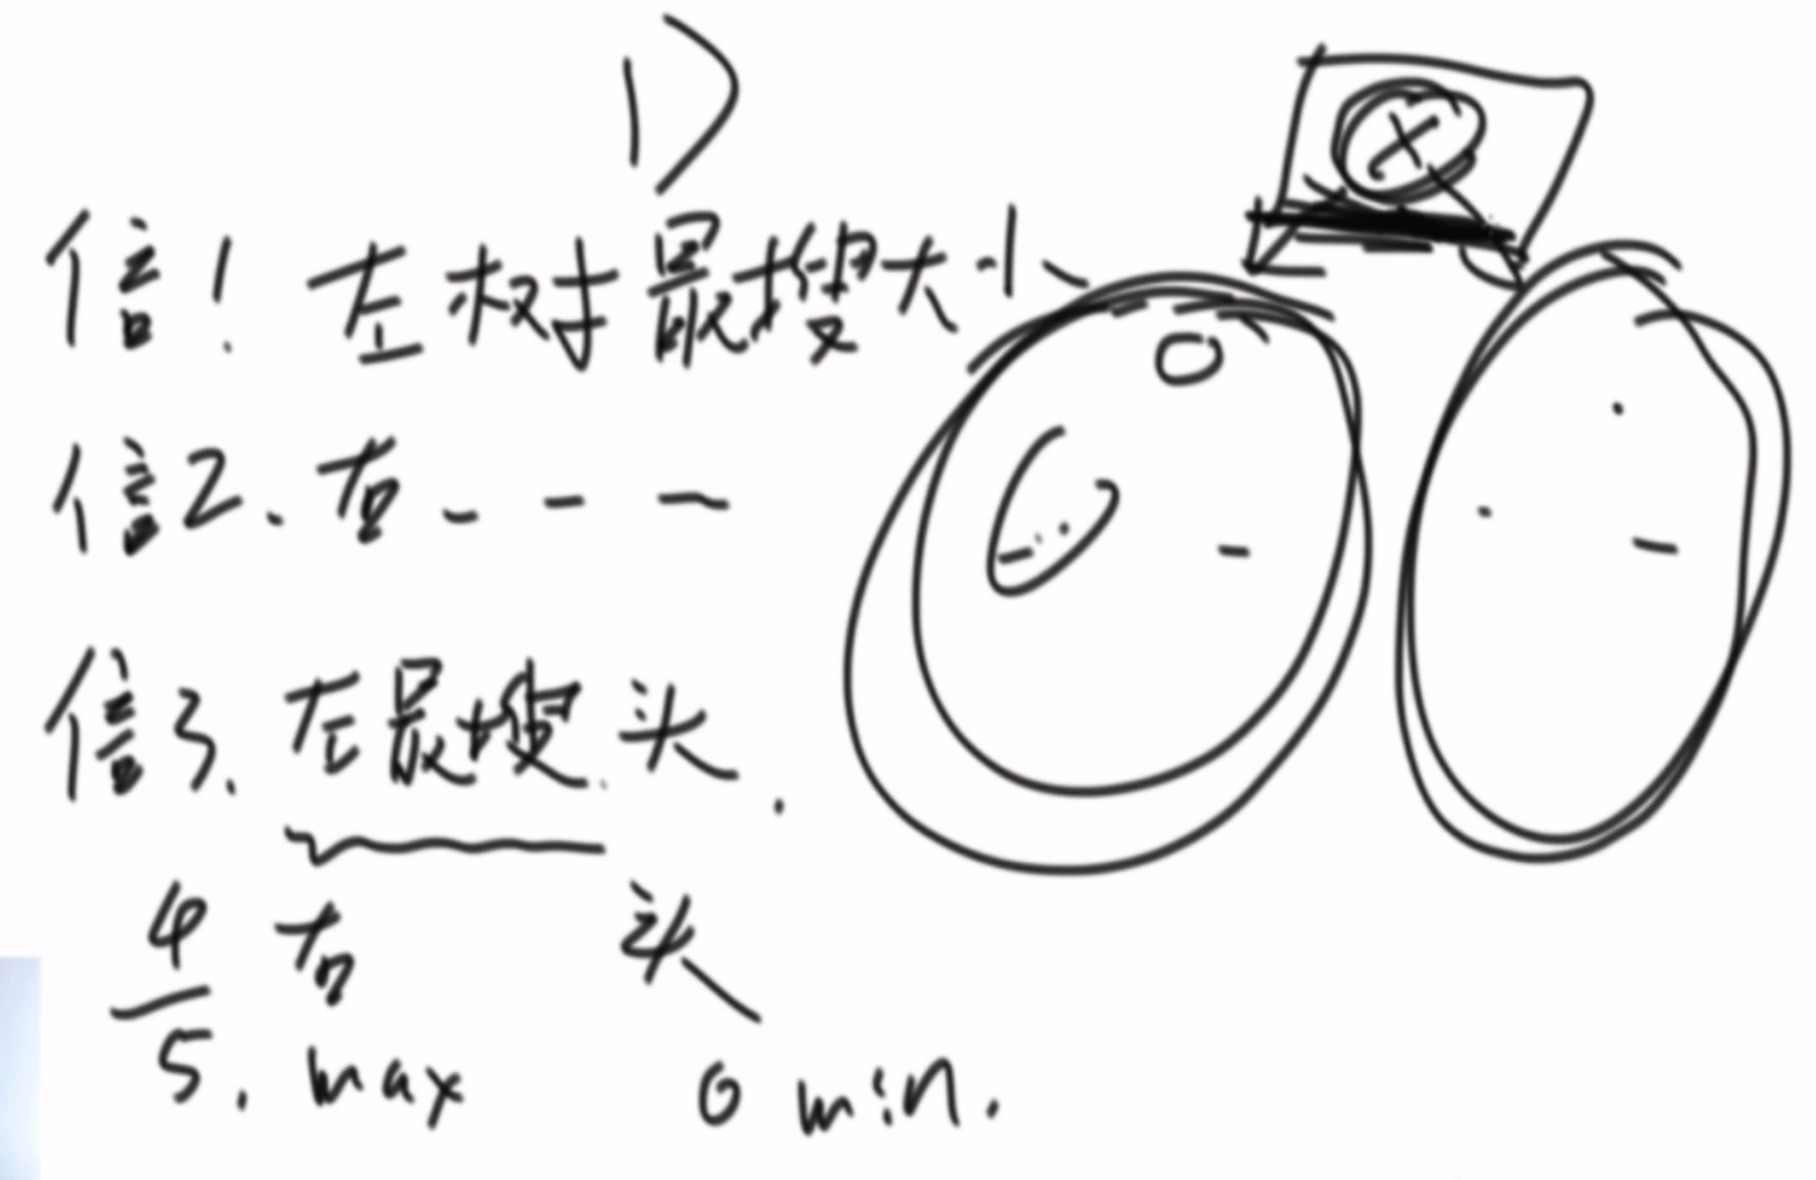 1)
信1. 左树最搜大小
信2. 右 - - -
信3. 左最搜 头.
4 右 头
5. max 6 min.
X